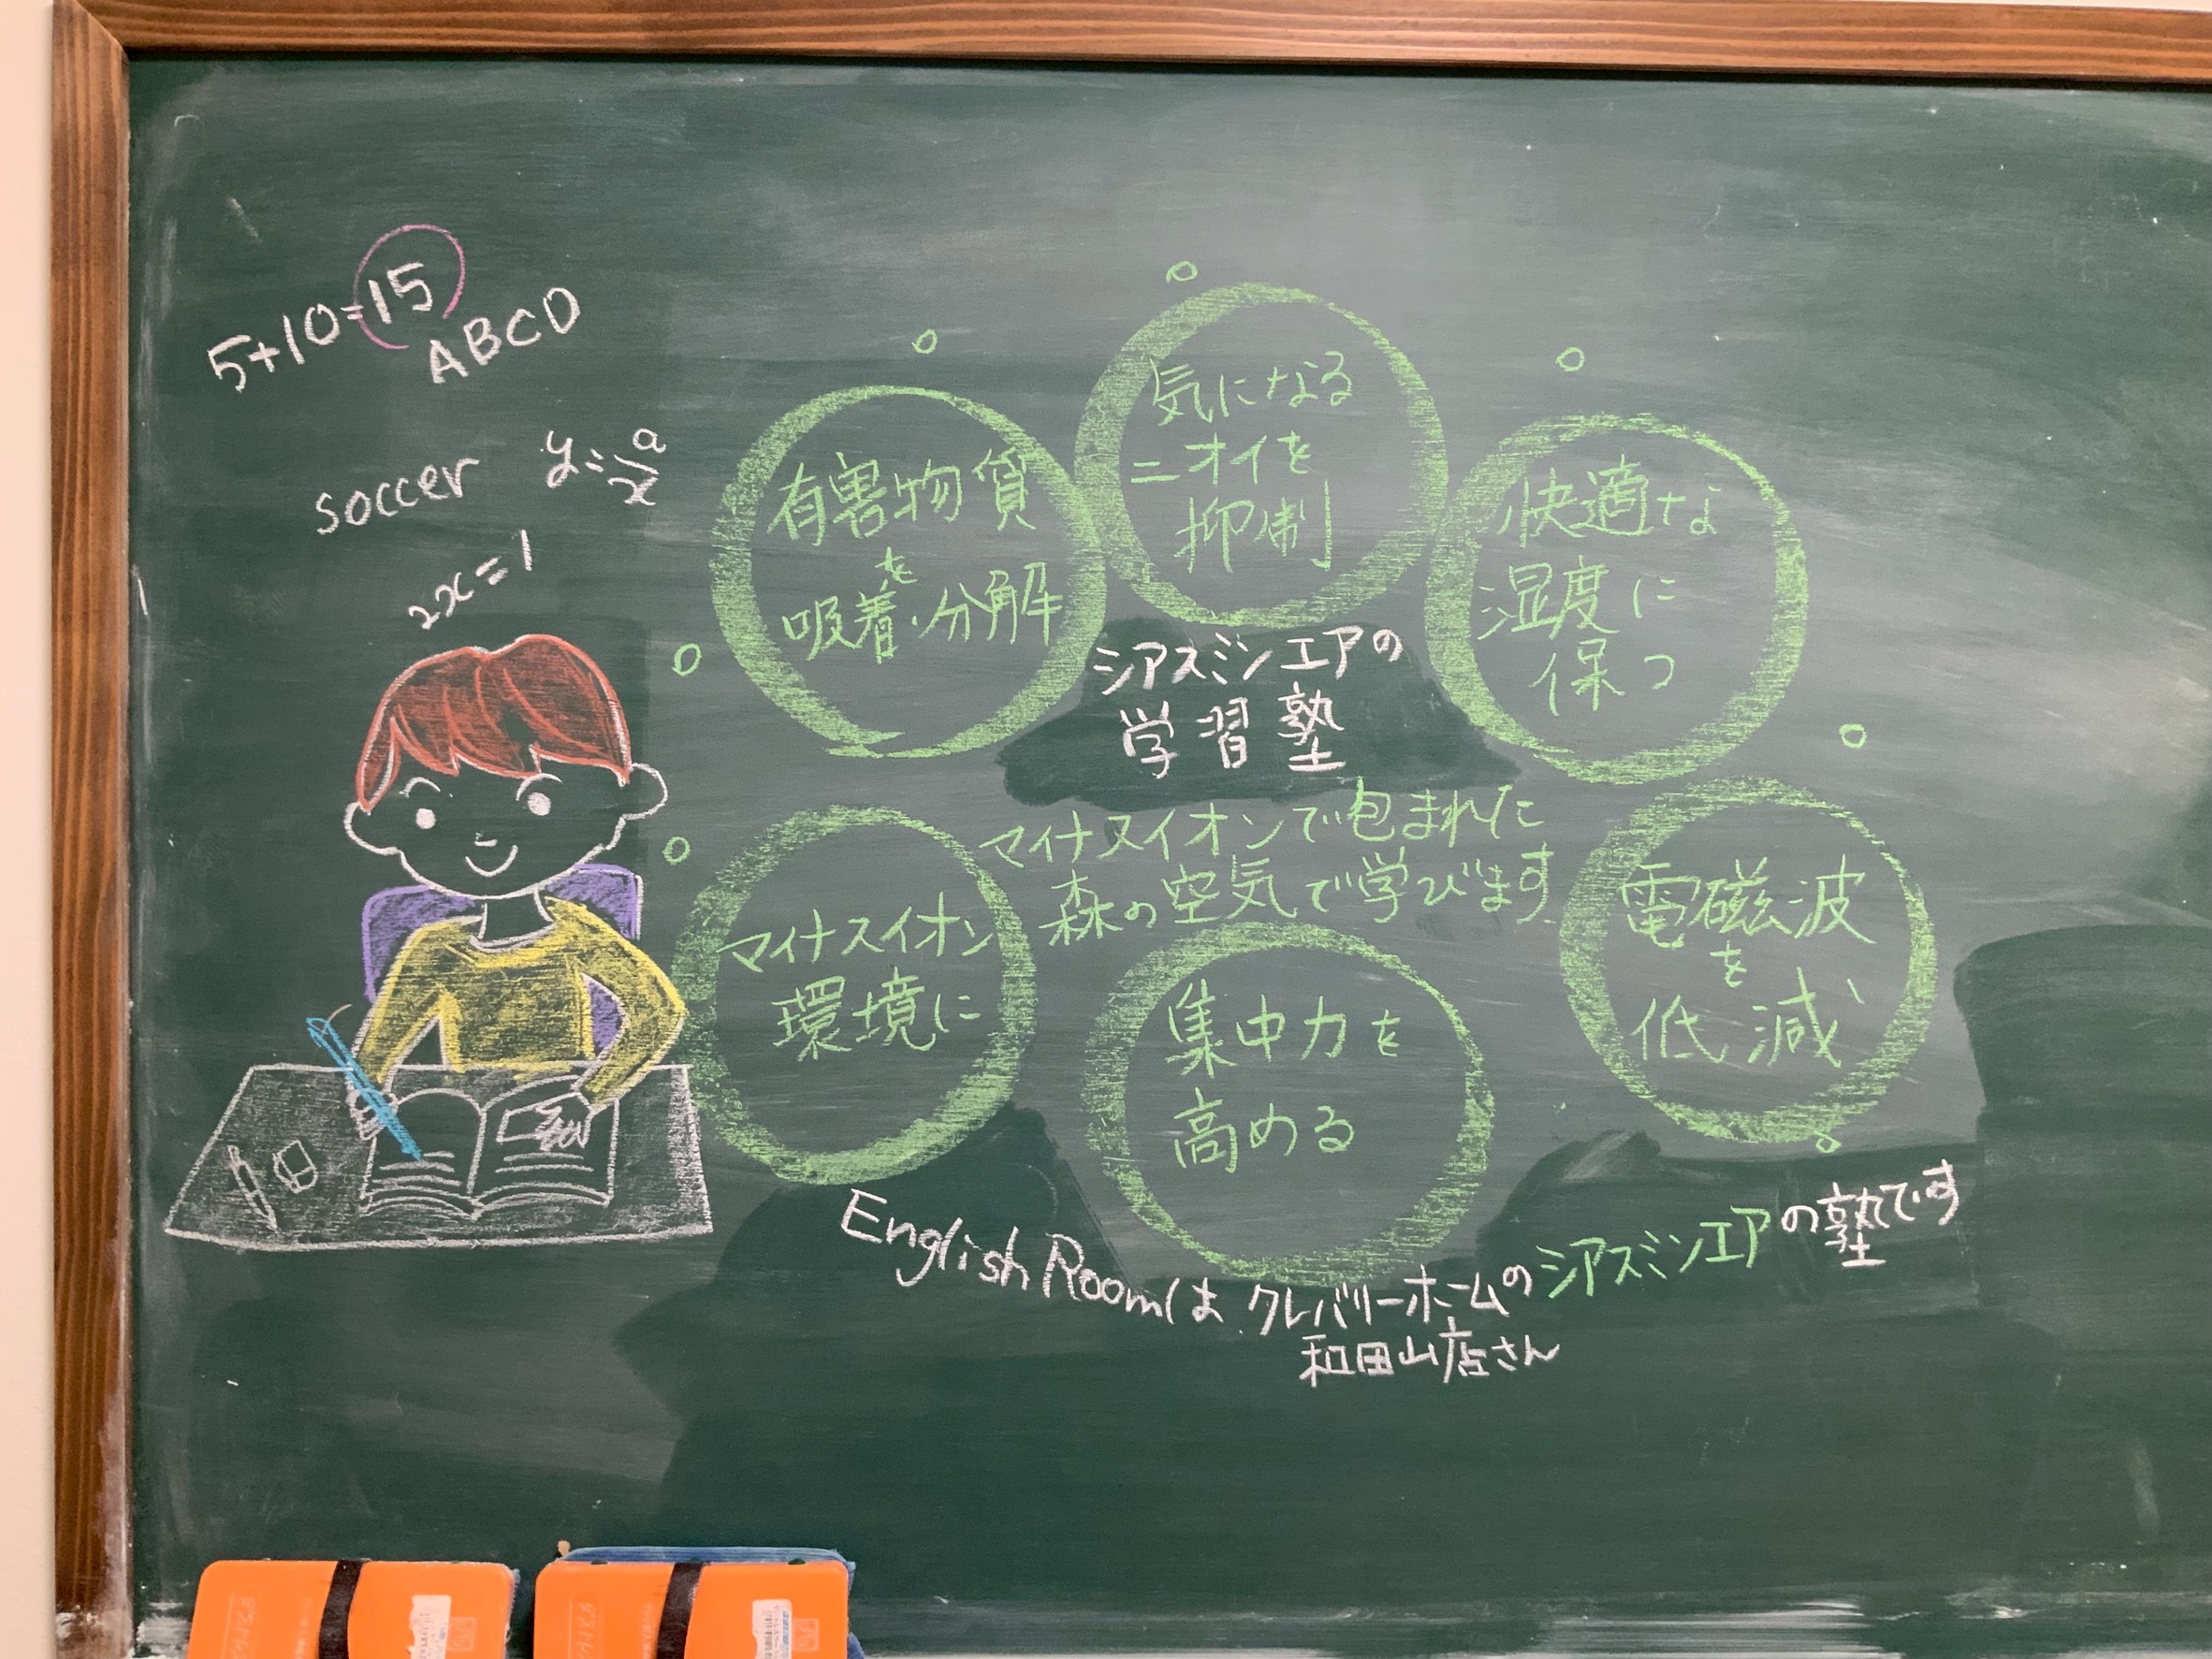 5+10=15
ABCD
soccer
y=a/x
2x=1
有害物質
を
吸着・分解
気になる
ニオイを
抑制
快適な
湿度に
保つ
シアスミンエアの
学習塾
マイナスイオンで包まれた
森の空気で学びます
マイナスイオン
環境に
集中力を
高める
電磁波
を
低減
English Roomは クレバリーホームのシアスミンエアの塾です
和田山店さん